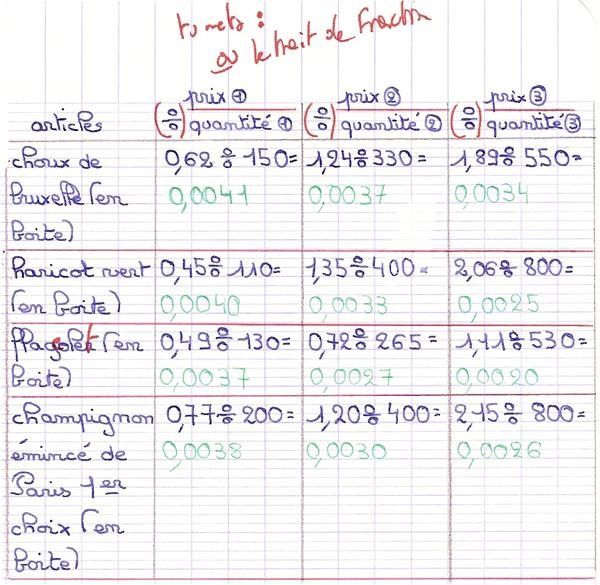 tu mets :
ou le trait de fraction
prix ① prix ② prix ③
articles (÷) quantité ① (÷) quantité ② (÷) quantité ③
choux de 0,62 ÷ 150= 1,24÷330= 1,89÷ 550=
bruxelle (en 0,0041 0,0037 0,0034
boite)
haricot vert 0,45÷ 110= 1,35÷400= 2,06÷ 800=
(en boite) 0,0040 0,0033 0,0025
flagolet (en 0,49÷130= 0,72÷265= 1,11÷530=
boite) 0,0037 0,0027 0,0020
champignon 0,77÷200= 1,20÷400= 2,15÷ 800=
émincé de 0,0038 0,0030 0,0026
Paris 1er
choix (en
boite)